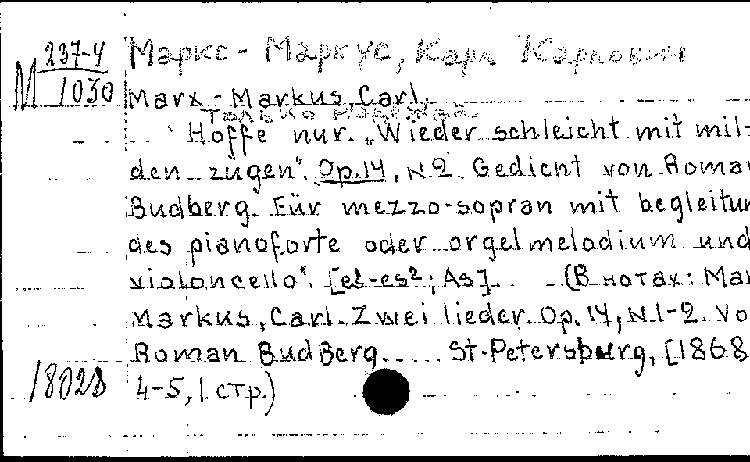 М 237-4 / 1030
Маркс - Маркус, Карл Карлович
Marx - Markus, Carl.
Только надежда.
Hoffe nur. „Wieder schleicht mit mil-
den zügen". Op.14, N2. Gedicht von Roman
Budberg. Für mezzo-sopran mit begleitun
des pianoforte oder orgelmelodium und
violoncello". [e1-es2; As]. (В нотах: Mar
Markus, Carl. Zwei lieder. Op.14, N.1-2. Vo
Roman BudBerg..... St.-Petersburg, [1868
4-5, 1. стр.)
18028